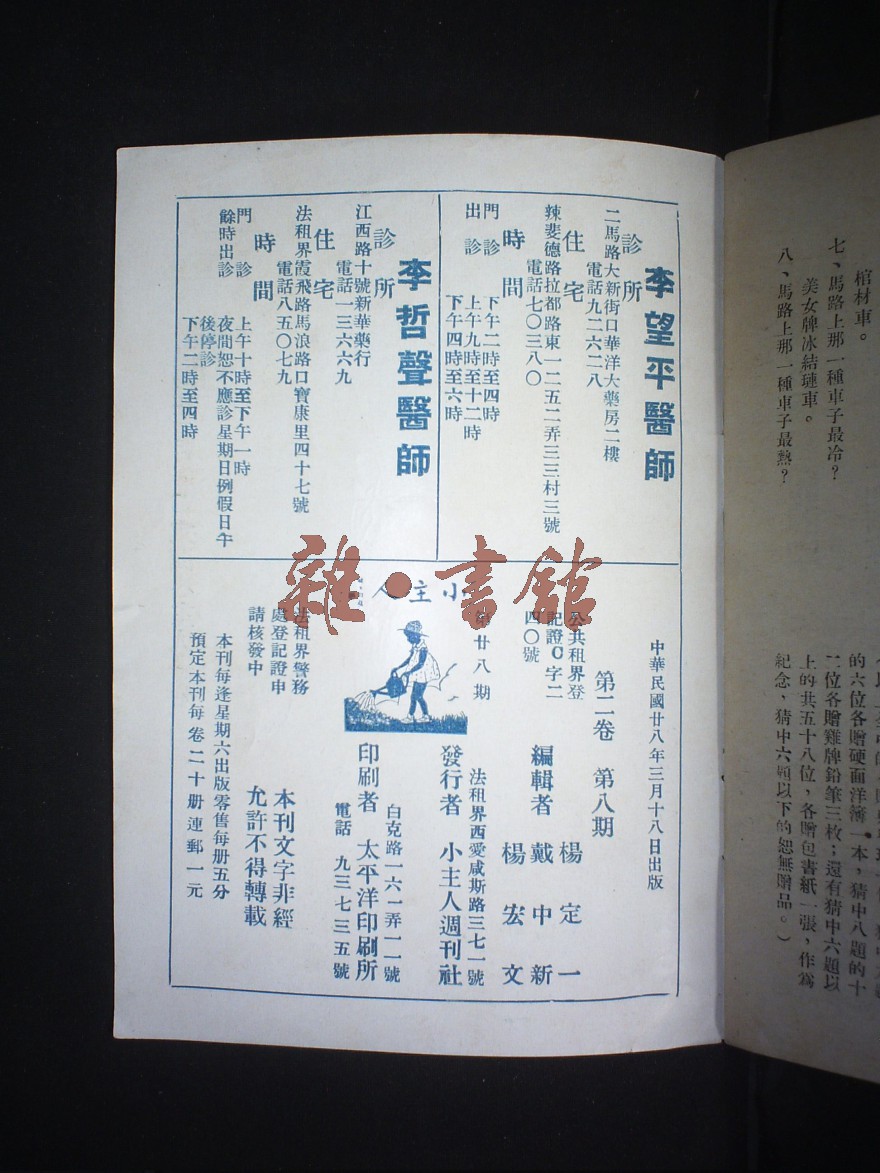 李望平醫師
診所
二馬路大新街口華洋大藥房二樓
電話九二六二八
住宅
辣斐德路拉都路東一二五二弄三三村三號
電話七〇三八〇
時間
門診 下午二時至四時
上午九時至十二時
出診 下午四時至六時
李哲聲醫師
診所
江西路十號新華藥行
電話一三六六九
住宅
法租界霞飛路馬浪路口寶康里四十七號
電話八五〇七九
時間
門診 上午十時至下午一時
夜間恕不應診星期日例假日午
後停診
餘時出診 下午二時至四時
雜·書館
小主人
中華民國廿八年三月十八日出版
第二卷 第八期
公共租界登
記證C字二
四〇號
第廿八期
法租界警務
處登記證申
請核發中
本刊每逢星期六出版零售每册五分
預定本刊每卷二十册連郵一元
楊定一
編輯者 戴中新
楊宏文
法租界西愛咸斯路三七一號
發行者 小主人週刊社
白克路一六一弄一一號
印刷者 太平洋印刷所
電話 九三七三五號
本刊文字非經
允許不得轉載
棺材車。
七、馬路上那一種車子最冷？
美女牌冰結璉車。
八、馬路上那一種車子最熱？
的六位各贈硬面洋簿一本，猜中八題的十
二位各贈雞牌鉛筆三枚；還有猜中六題以
上的共五十八位，各贈包書紙一張，作爲
紀念，猜中六題以下的恕無贈品。）